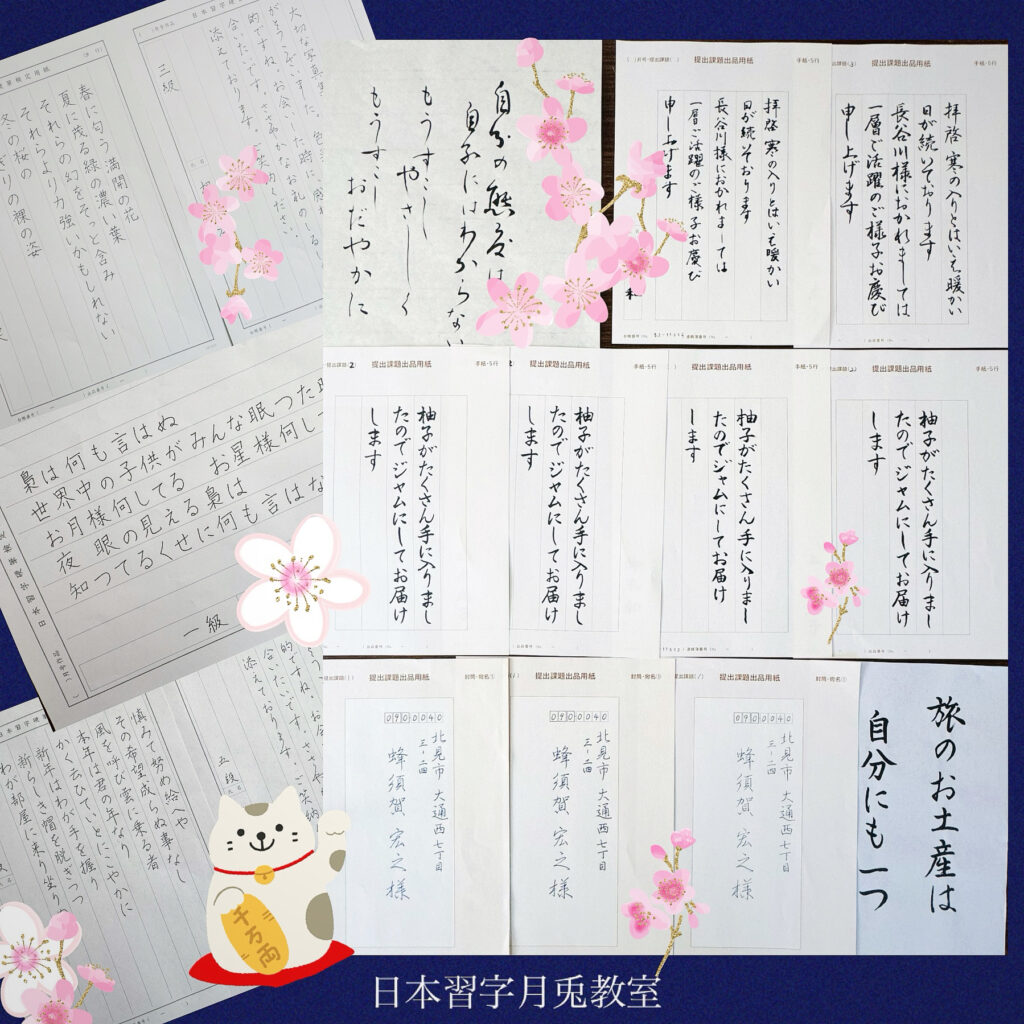 日本習字
三級
大切な写真
添えております。
春に匂う 満開の花
夏に茂る緑の濃い葉
それらの幻をそっと含み
それらより力強いかもしれない
冬の桜の 裸の姿
自分の態度は
自分にはわからない
もうすこし
やさしく
もうすこし
おだやかに
提出課題出品用紙
手紙・5行
拝啓 寒の入りとはいえ暖かい
日が続いております
長谷川様におかれましては
一層ご活躍のご様子お慶び
申し上げます
提出課題出品用紙
手紙・5行
拝啓 寒の入りとはいえ暖かい
日が続いております
長谷川様におかれましては
一層ご活躍のご様子お慶び
申し上げます
梟は何も言はぬ
世界中の子供がみんな眠つた
お月様何してる お星様何し
夜 眼の見える梟は
知つてるくせに何も言はな
一級
提出課題(2)
提出課題出品用紙
手紙・5行
柚子がたくさん手に入りまし
たのでジャムにしてお届け
します
提出課題出品用紙
手紙・5行
柚子がたくさん手に入りまし
たのでジャムにしてお届け
します
提出課題出品用紙
手紙・5行
柚子がたくさん手に入りまし
たのでジャムにしてお届け
します
提出課題出品用紙
手紙・5行
柚子がたくさん手に入りまし
たのでジャムにしてお届け
します
五段
添えております。
慎みて努め給へや
その希望成らぬ事なし
風を呼び雲に乗る者
本年は君の年なり
かく云ひていとにこやかに
新年はわが手を握り
新らしき帽を脱ぎつつ
わが部屋に来り坐り
提出課題出品用紙
封筒・宛名①
0900040
北見市 大通西七丁目
三-二四
蜂須賀 宏之様
提出課題出品用紙
封筒・宛名①
0900040
北見市 大通西七丁目
三-二四
蜂須賀 宏之様
提出課題出品用紙
封筒・宛名①
0900040
北見市 大通西七丁目
三-二四
蜂須賀 宏之様
旅のお土産は
自分にも一つ
千万両
日本習字月兎教室